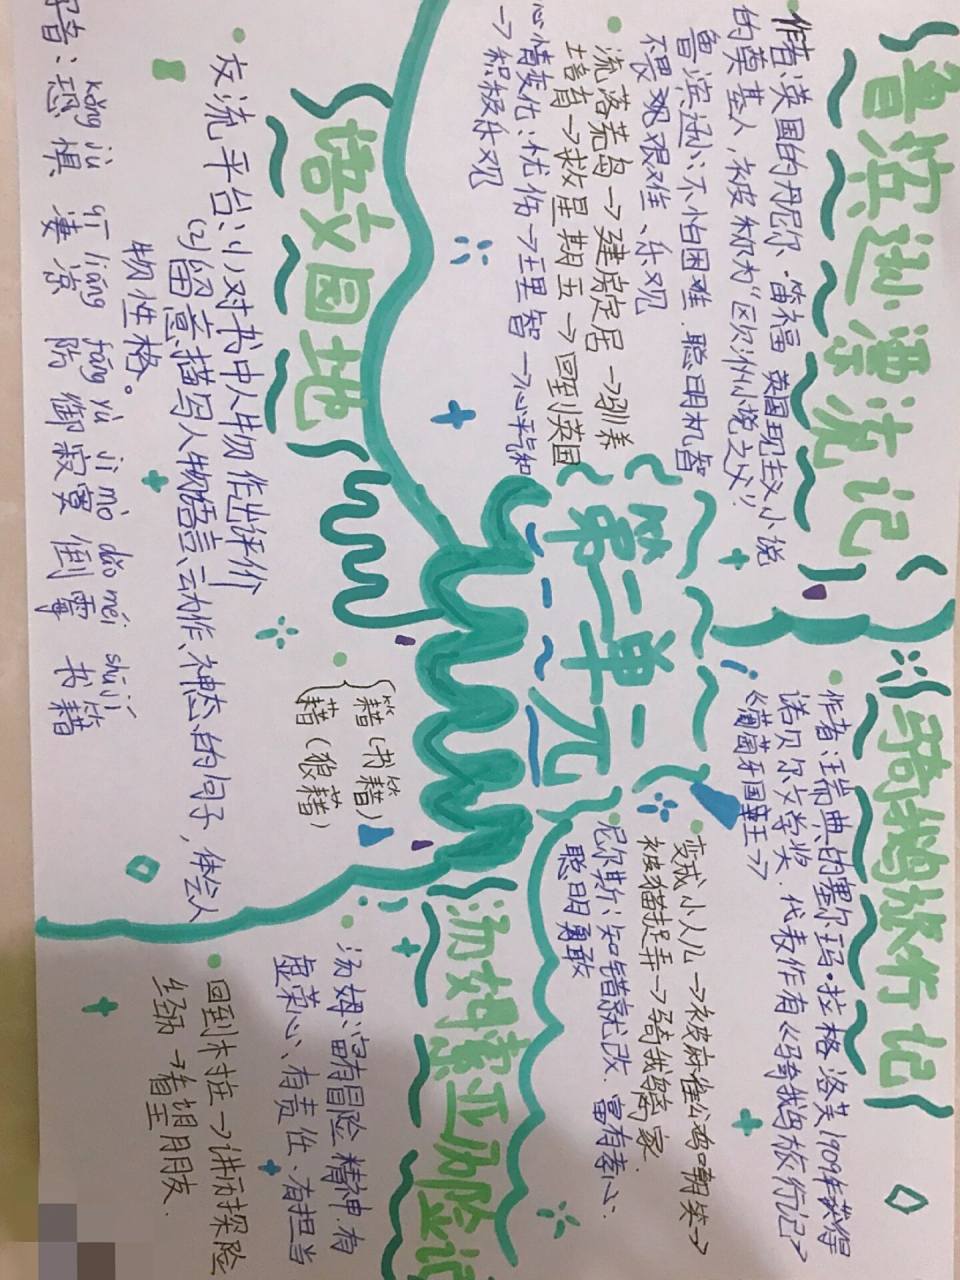 鲁滨逊漂流记
作者:英国的丹尼尔·笛福 英国现主义小说
的奠基人,被称为"欧洲小说之父"
鲁滨逊:不怕困难、聪明机智
不畏艰难、乐观
流落荒岛→建房定居→驯养
培育→救星期五→回到英国
心情变化:忧伤→理智→心平气和
→积极乐观
骑鹅旅行记
作者:瑞典的塞尔玛·拉格洛芙1909年获得
诺贝尔文学奖.代表作有《骑鹅旅行记》
《葡萄牙国王》
变成小人儿→被麻雀公鸡嘲笑→
被猫捉弄→骑鹅离家.
尼尔斯:知错就改.富有孝心.
聪明勇敢
第二单元
语文园地
交流平台:(1)对书中人物作出评价
(2)留意描写人物语言、动作、神态的句子,体会人
物性格。
kǒng jù qī liáng fáng yù jì mò dǎo méi shū jí
字音:恐惧 凄凉 防御 寂寞 倒霉 书籍
籍(书籍)
藉(狼藉)
汤姆索亚历险记
汤姆:富有冒险精神有
虚荣心、有责任、有担当
回到村庄→讲历探险
经历→看望朋友.